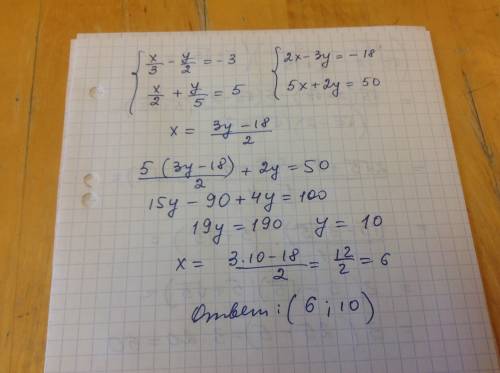 x/3 - y/2 = -3    2x - 3y = -18
x/2 + y/5 = 5    5x + 2y = 50
x = (3y - 18)/2
5(3y - 18)/2 + 2y = 50
15y - 90 + 4y = 100
19y = 190    y = 10
x = (3·10 - 18)/2 = 12/2 = 6
Ответ: (6; 10)